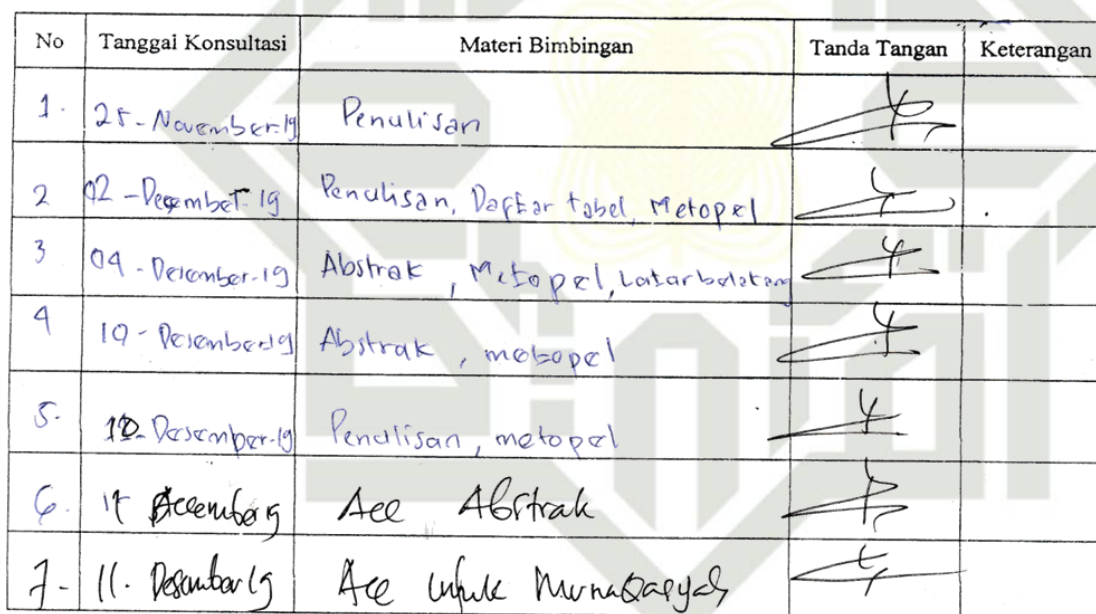 No Tanggal Konsultasi Materi Bimbingan Tanda Tangan Keterangan
1. 25-November-19 Penulisan
2 02-Desember-19 Penulisan, Daftar tabel, Metopel
3 04-Desember-19 Abstrak, Metopel, Latar belakang
4 10-Desember-19 Abstrak, metopel
5. Desember-19 Penulisan, metopel
6. Acc Abstrak
7- 11. Desember 19 Acc untuk Munaqasyah